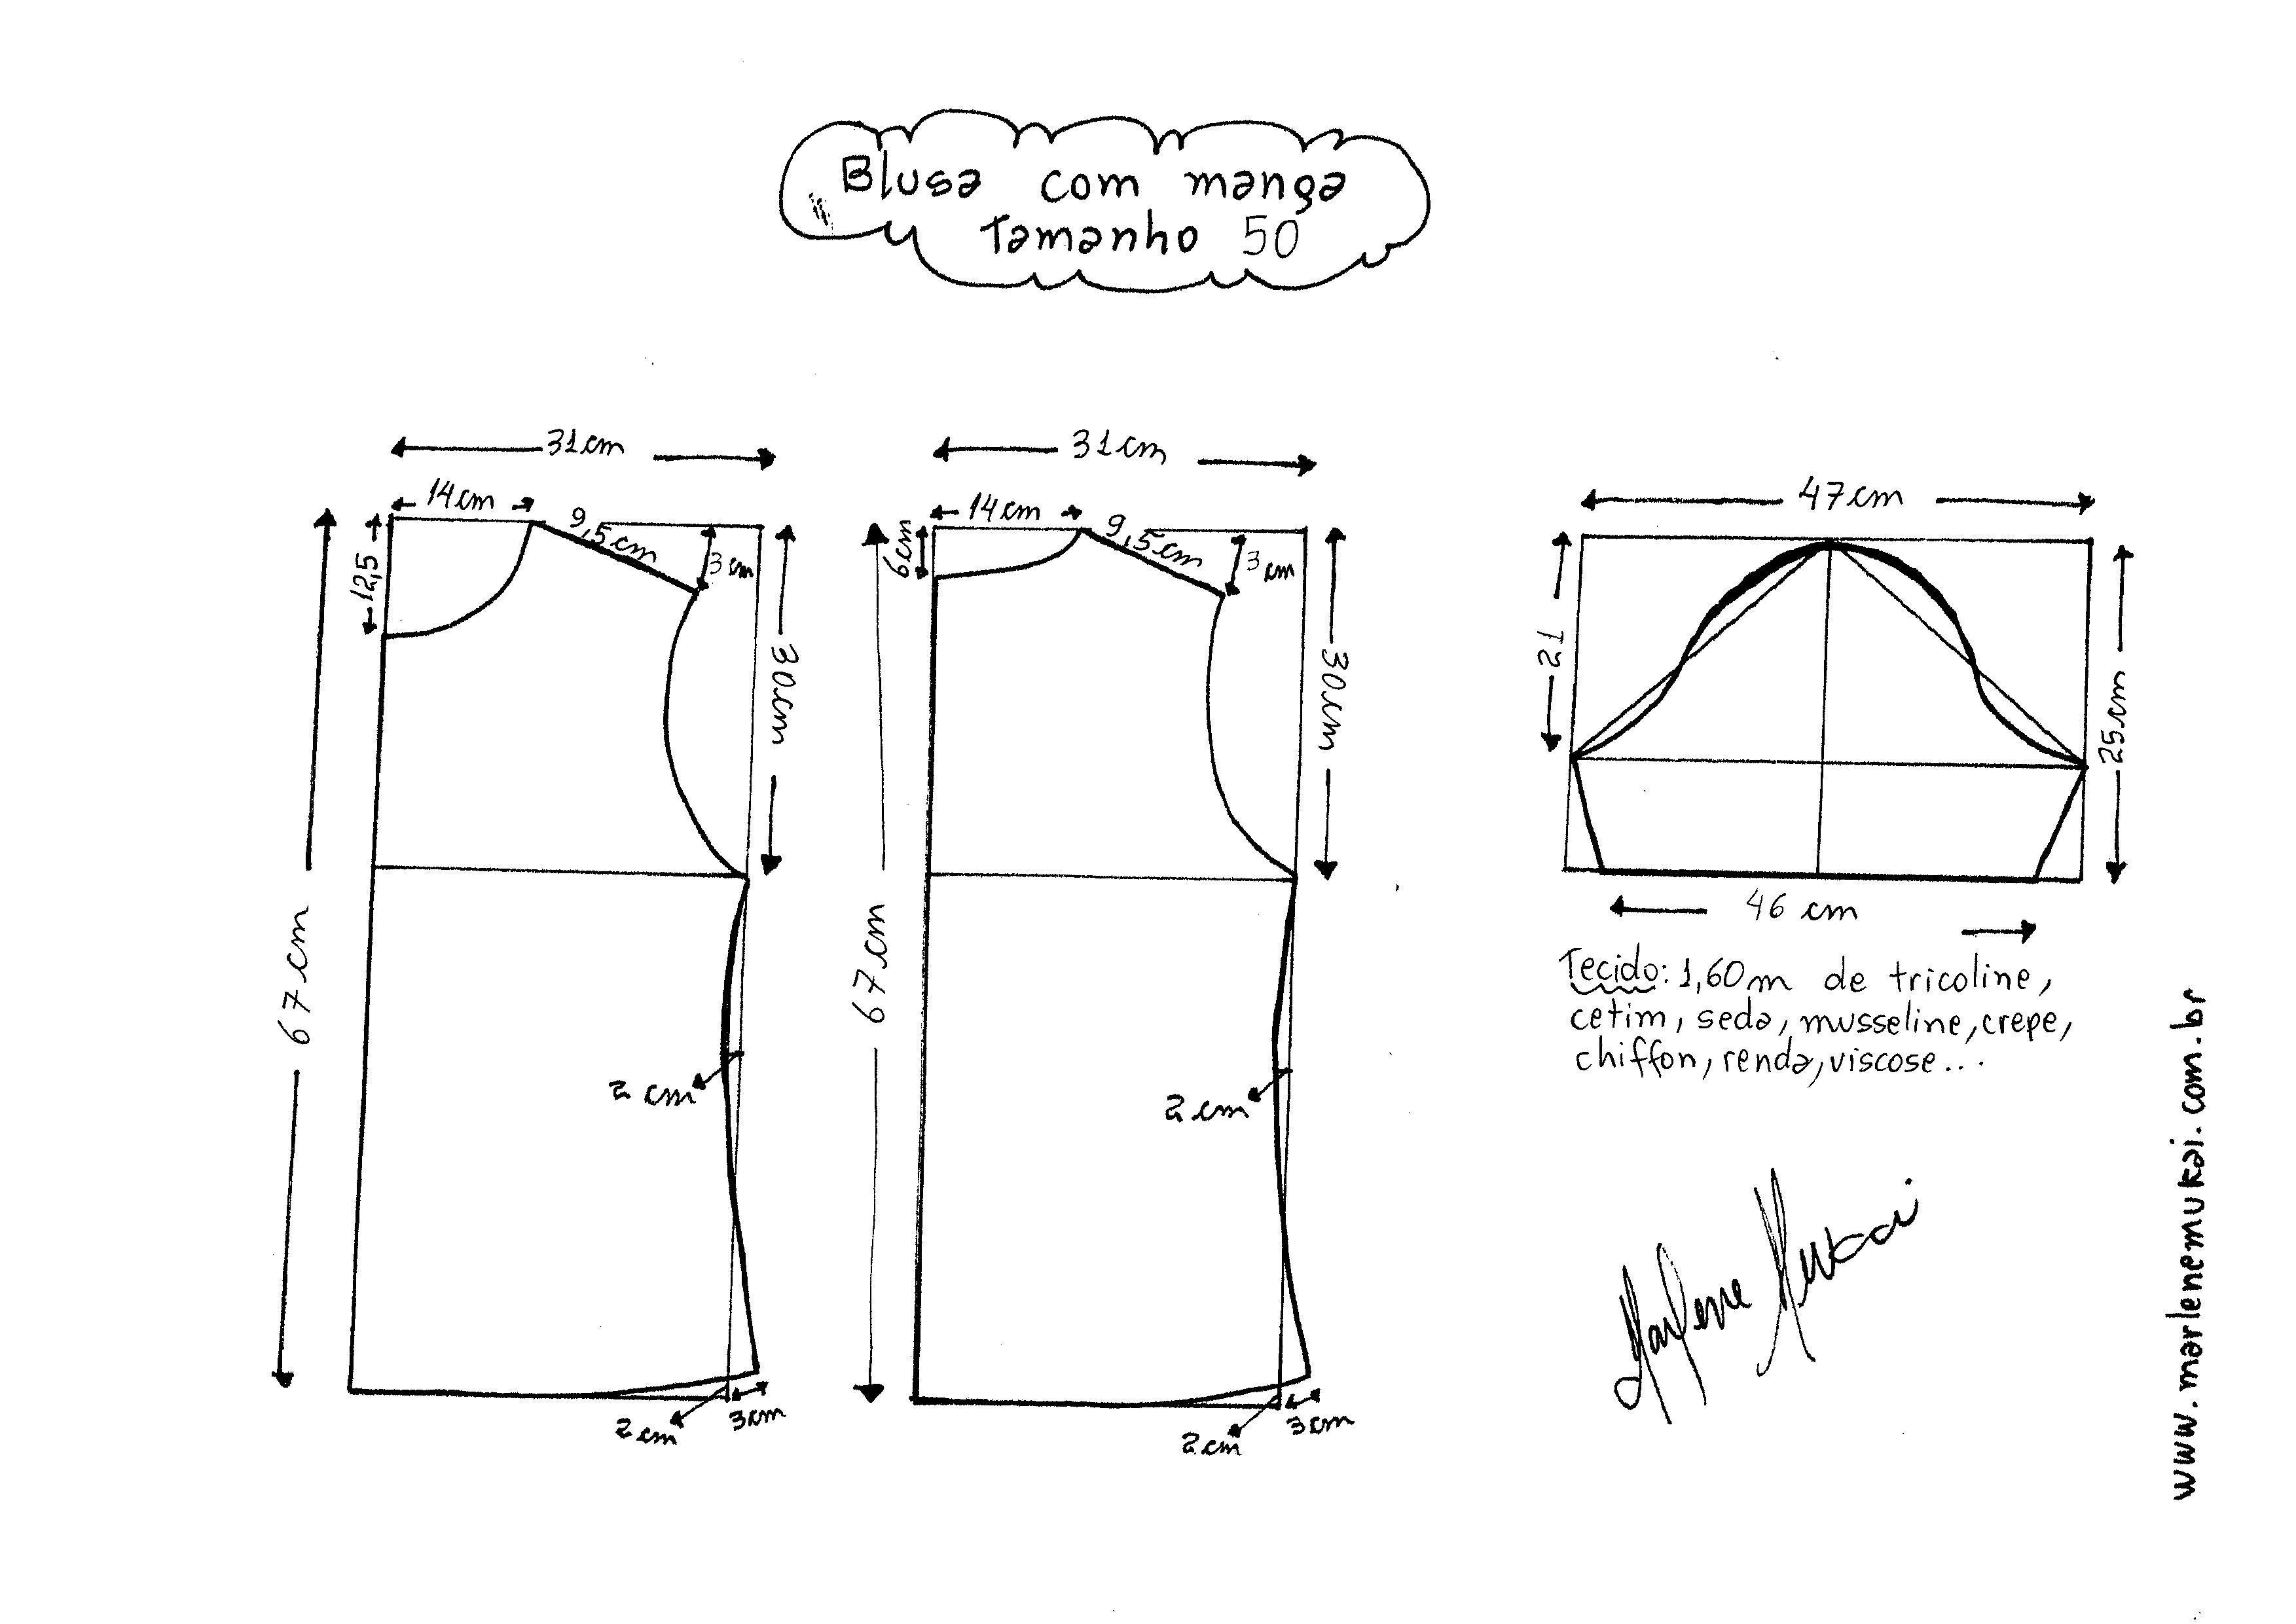 Blusa com manga
Tamanho 50
31cm
14cm
9,5cm
3cm
12,5
30cm
67cm
2 cm
2cm
3cm
31cm
14cm
9,5cm
3cm
6cm
30cm
67cm
2cm
2cm
3cm
47cm
21
25cm
46 cm
Tecido: 1,60m de tricoline,
cetim, seda, musseline, crepe,
chiffon, renda, viscose...
Marlene Mukai
www.marlenemukai.com.br